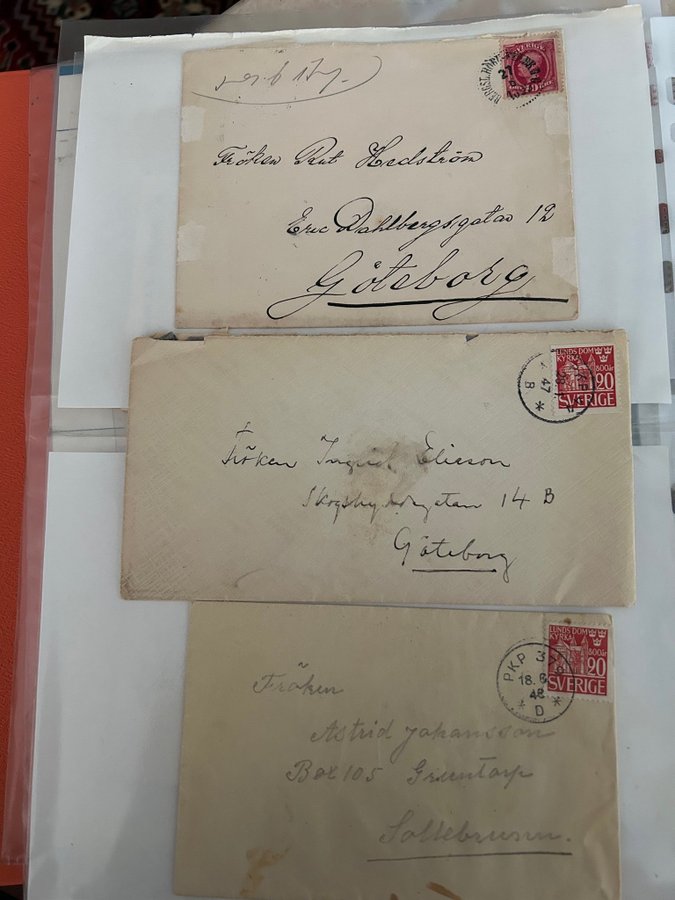 SVERIGE
27
Fröken Rut Hedström
Eric Dahlbergsgatan 12
Göteborg
LUNDS DOM
KYRKA
800år
90
SVERIGE
47
B
Fröken Ingrid Elieson
14 B
Göteborg
LUNDS DOM
KYRKA
800år
90
SVERIGE
PKP 3
18. 6
46
* D *
Fröken
Astrid Johansson
Box 105 Gruntorp
Sollebrunn.